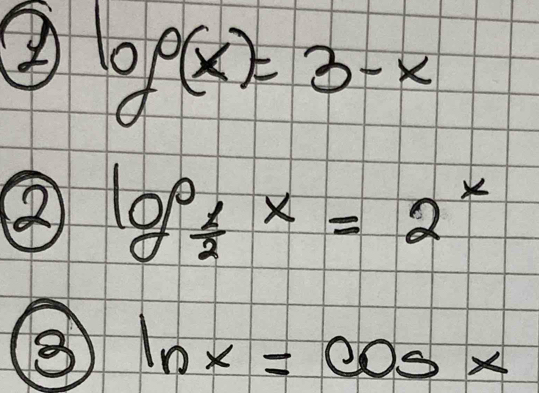 ① log(x) = 3 - x
② log_{1/2} x = 2^x
③ ln x = cos x